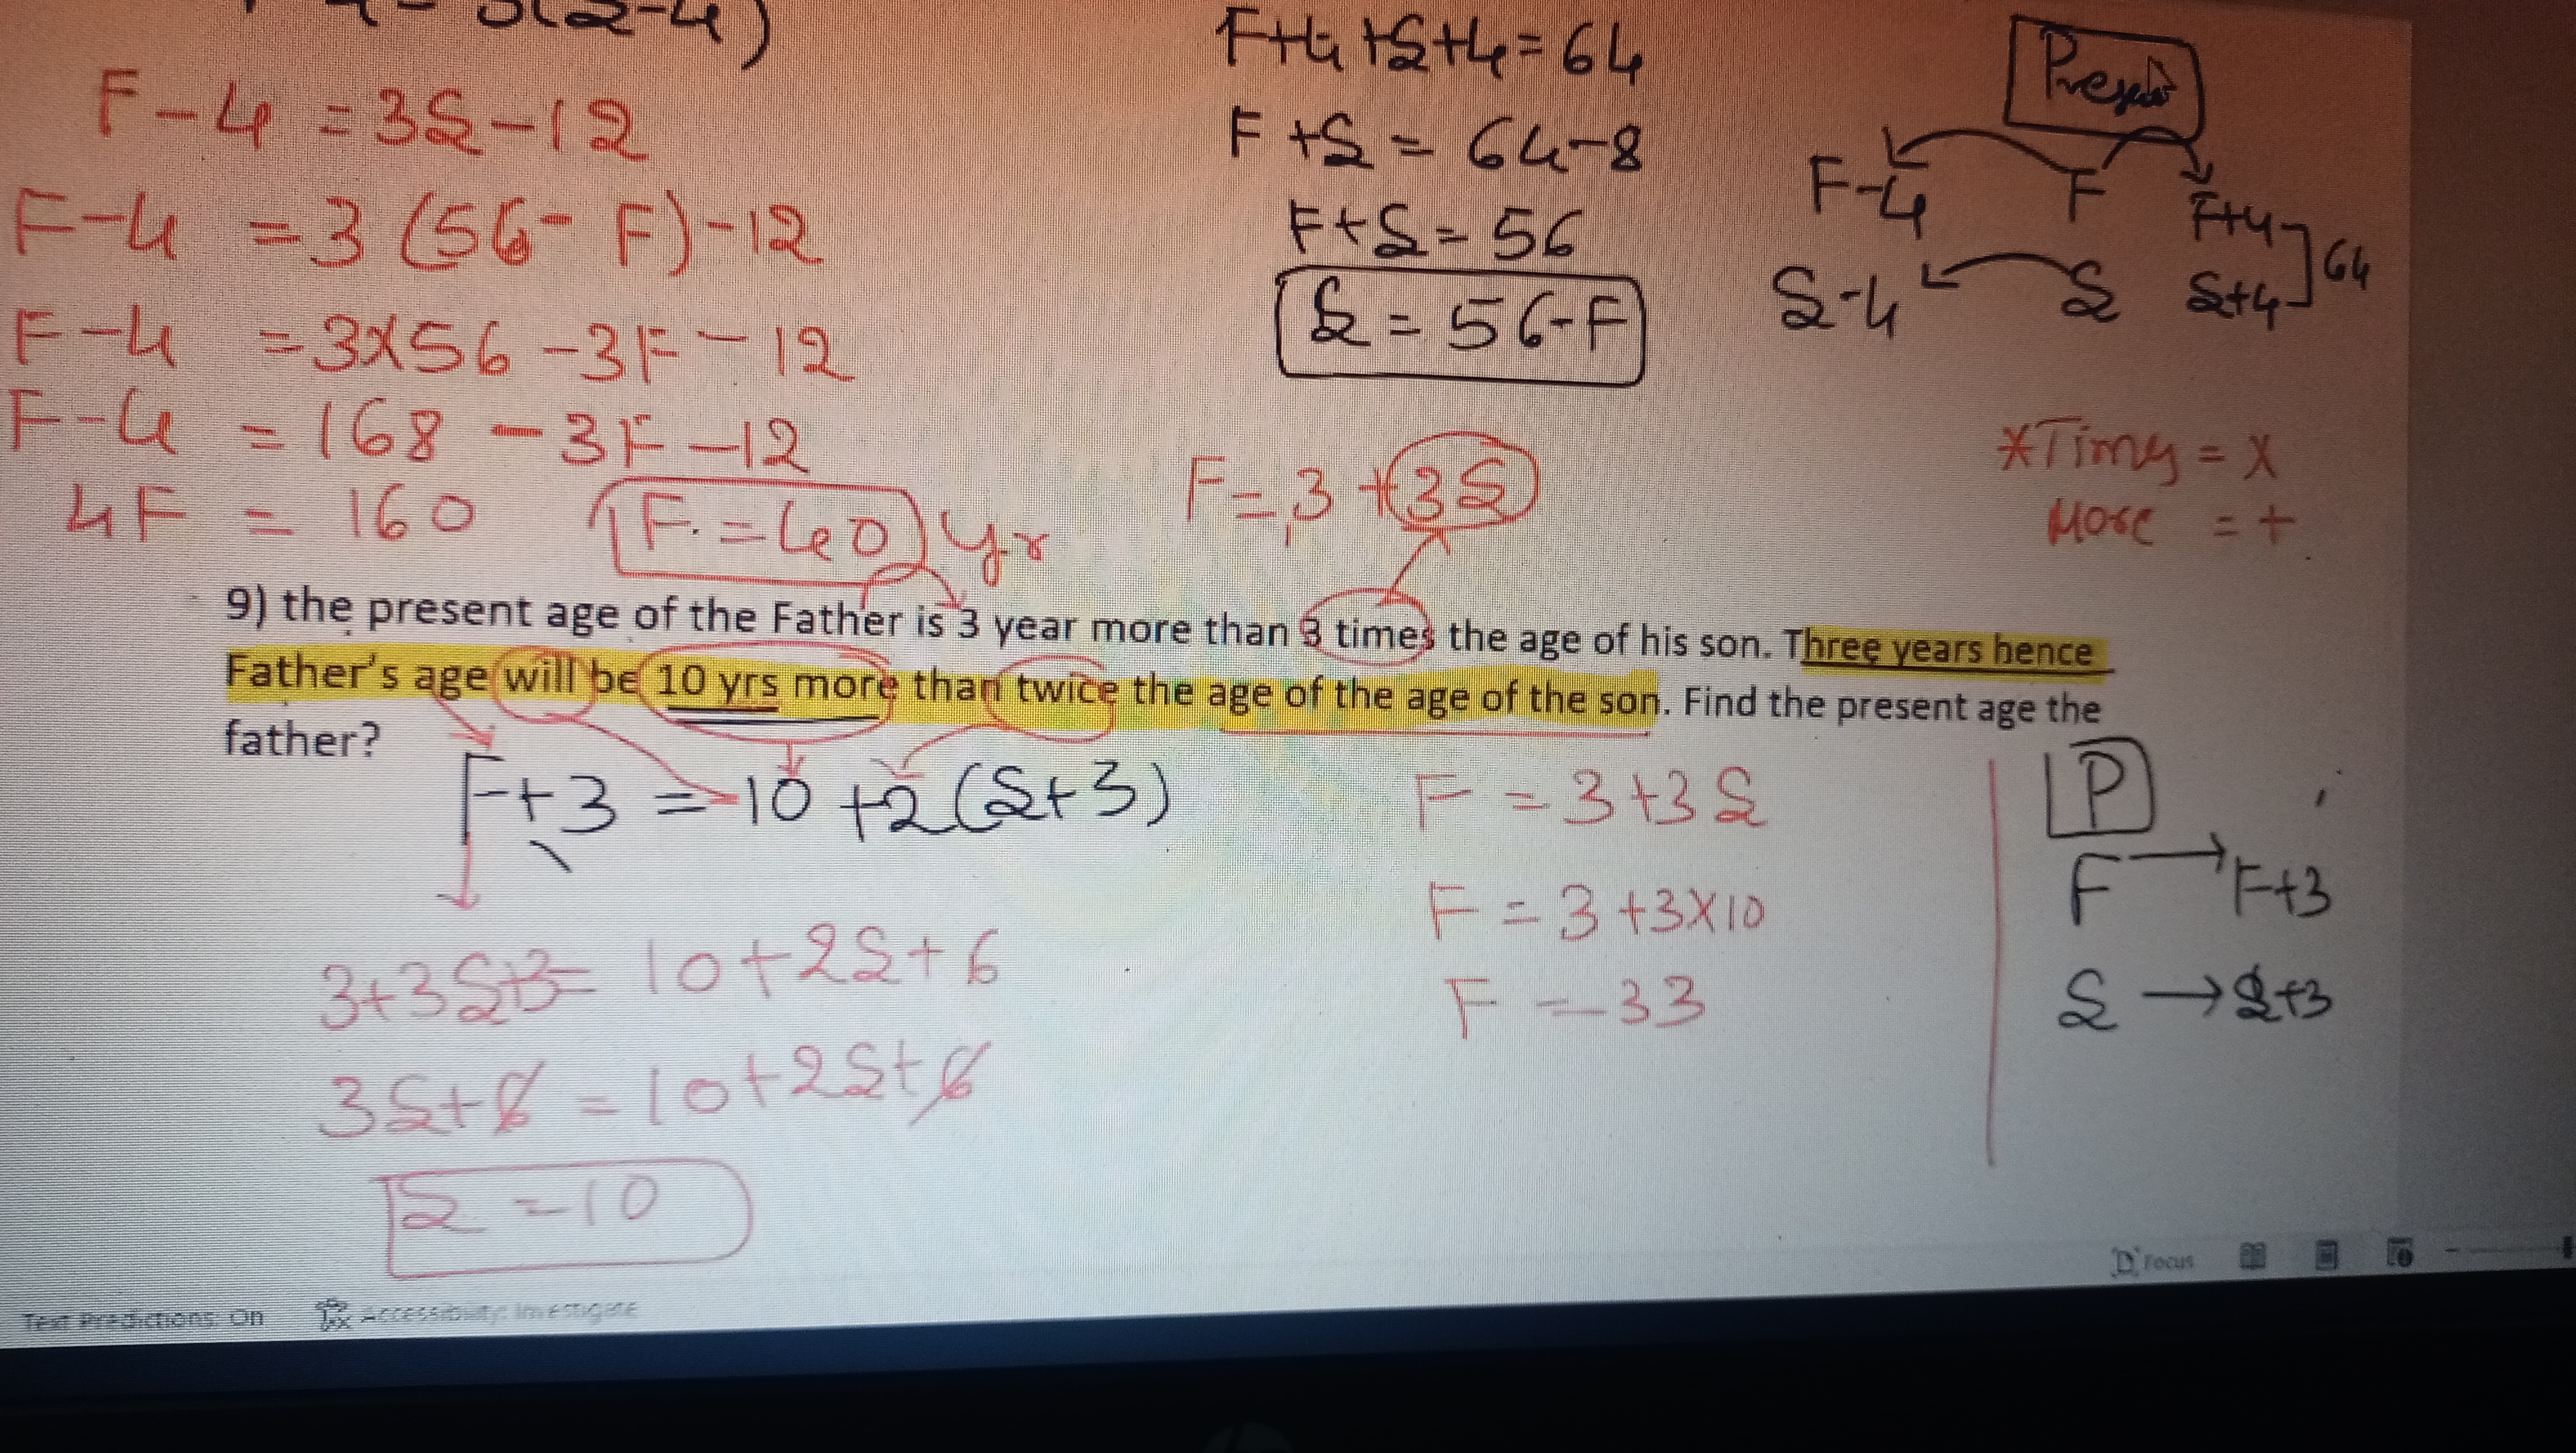 F-4 = 3S-12
F-4 = 3(56-F)-12
F-4 = 3x56-3F-12
F-4 = 168-3F-12
4F = 160
F = 40 yr
F+4+S+4=64
F+S = 64-8
F+S=56
S = 56-F
Present
F-4 F F+4
S-4 S S+4 ] 64
*Times = x
More = +
F = 3 + 3S
9) the present age of the Father is 3 year more than 3 times the age of his son. Three years hence
Father's age will be 10 yrs more than twice the age of the age of the son. Find the present age the
father?
F+3 = 10 +2(S+3)
3+3S+3= 10+2S+6
3S+6 = 10+2S+6
S = 10
F = 3+3S
F = 3+3x10
F = 33
P
F → F+3
S → S+3
Text Predictions: On Accessibility: Investigate Focus